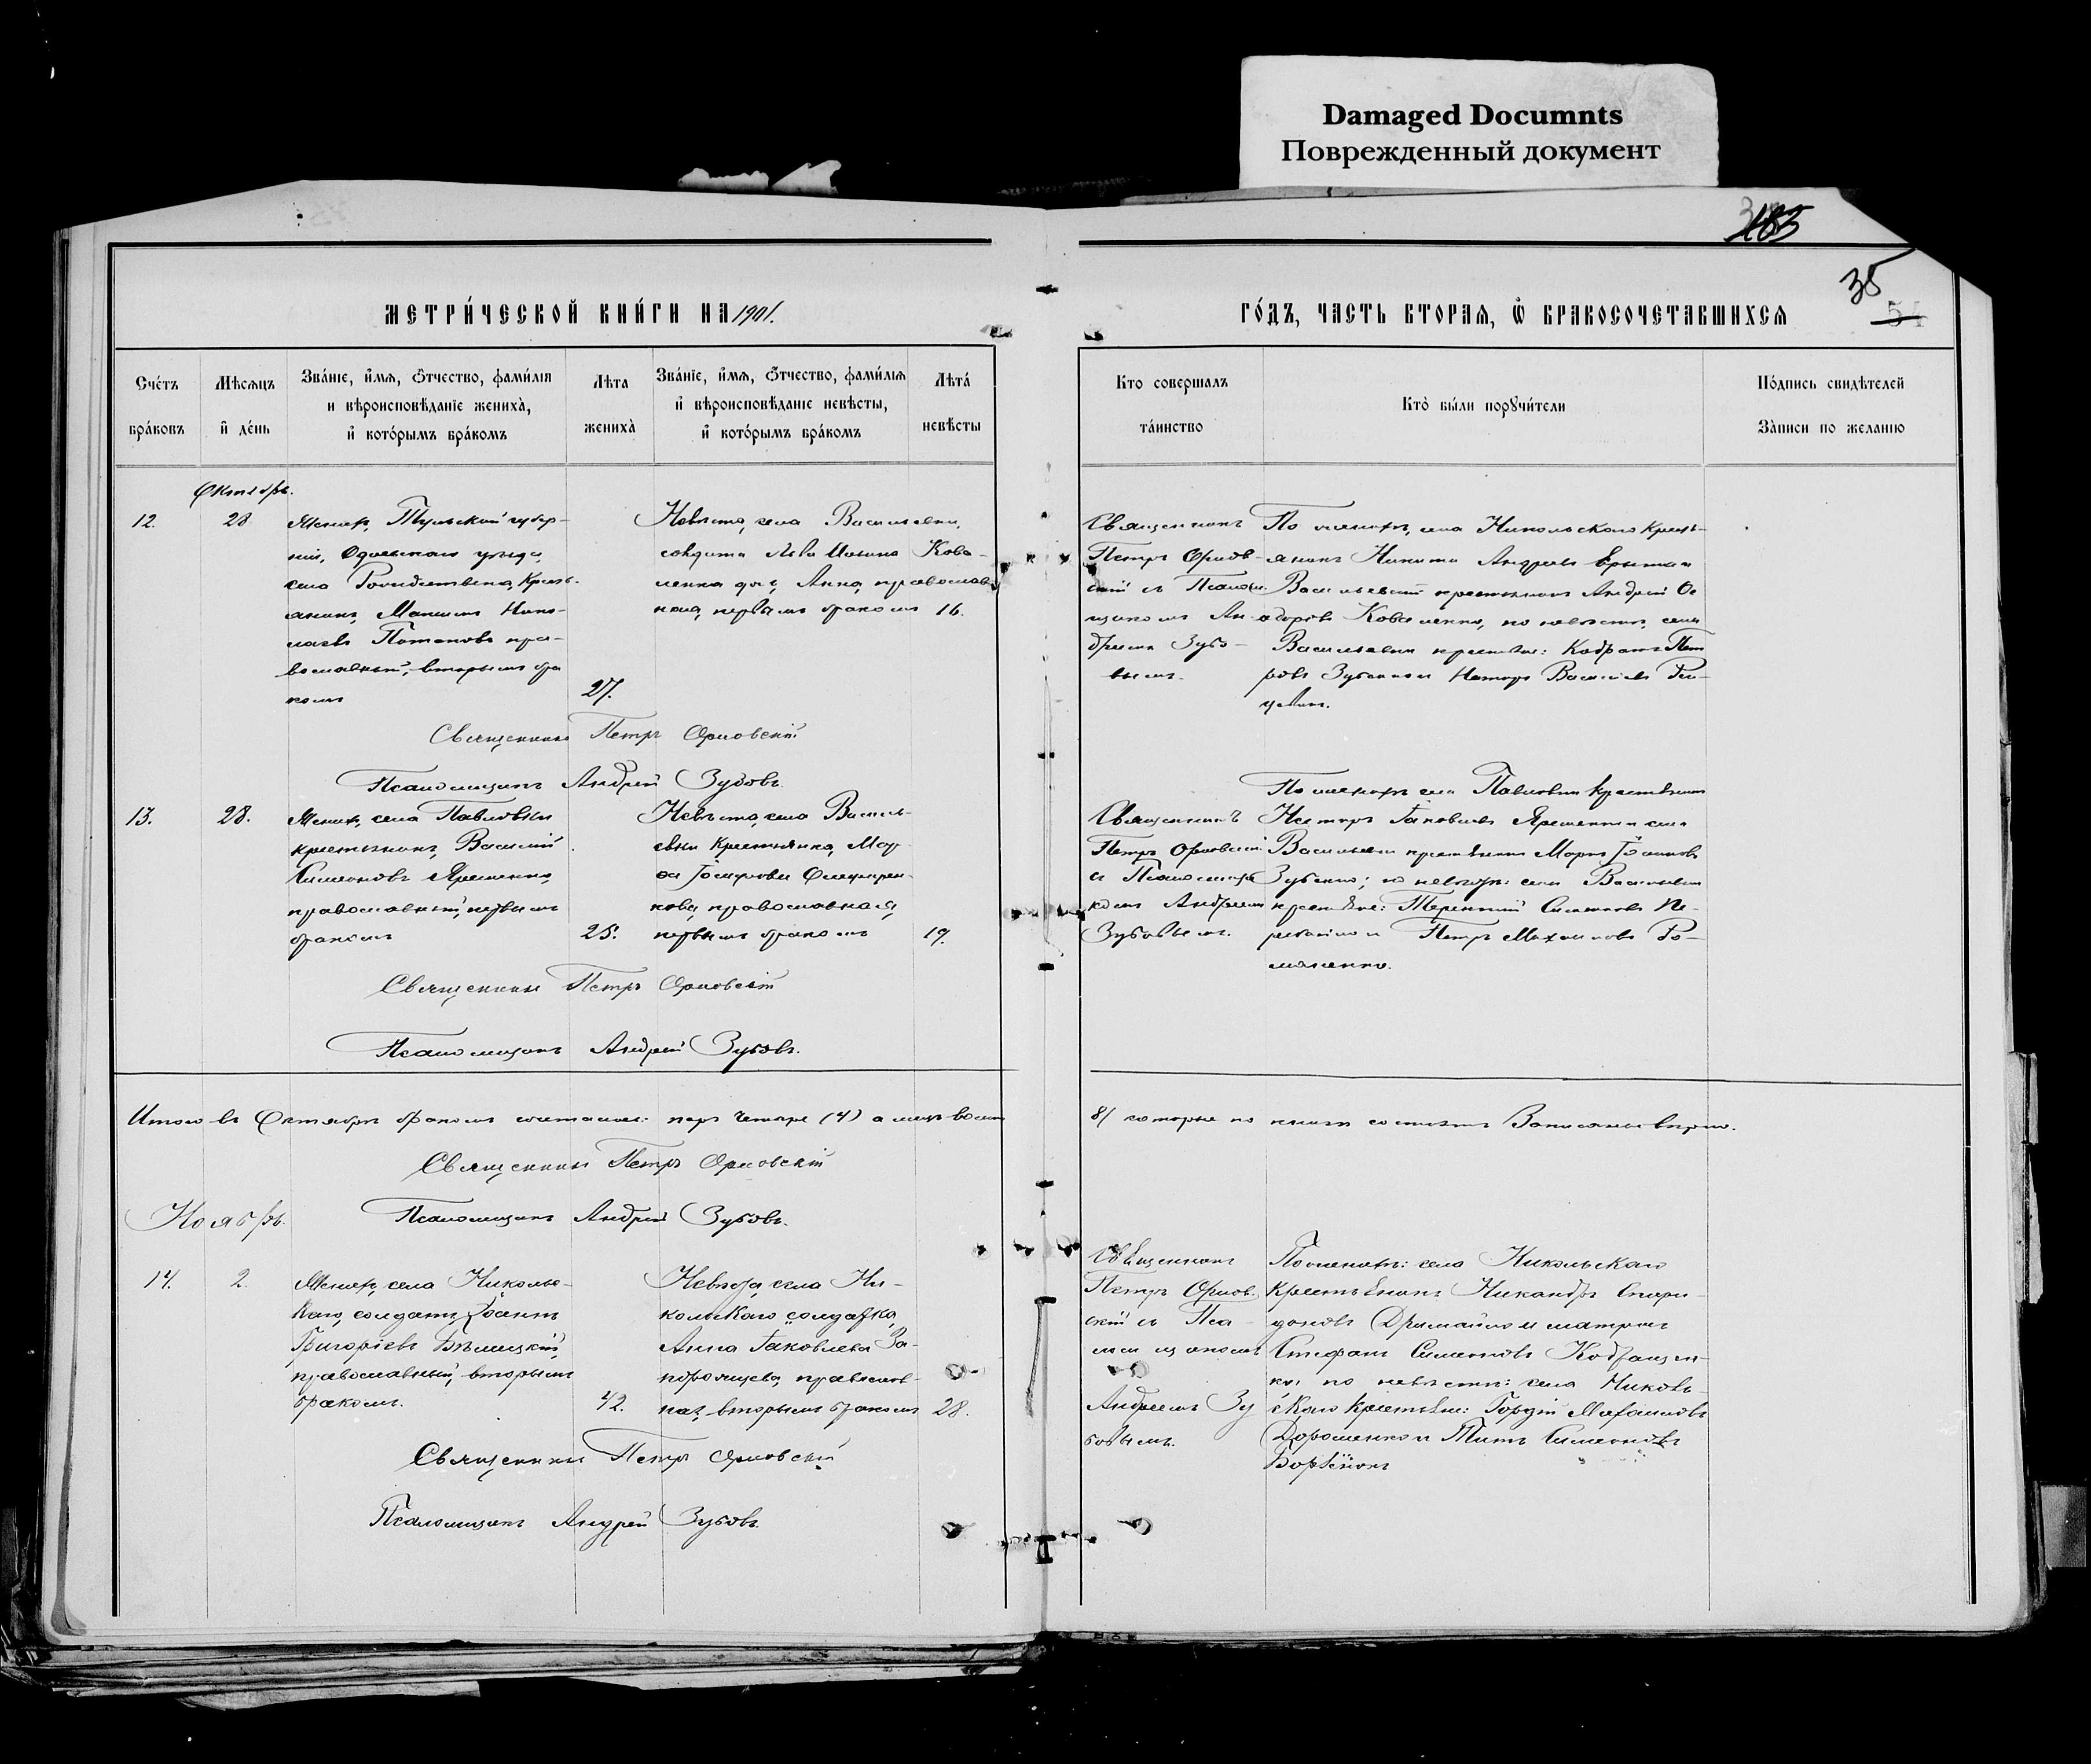 Damaged Documnts
Поврежденный документ
183
35
МЕТРИ́ЧЕСКОЙ КНИ́ГИ НА 1901.
ГО́ДЪ, ЧАСТЬ ВТОРАѦ, Ѽ БРАКОСОЧЕТАВШИХСѦ
Сче́тъ бра́ковъ
Мѣ́сѧцъ и҆ де́нь
Зва́нїе, и҆́мѧ, ѻ҆́тчество, фами́лїѧ
и вѣроисповѣ́данїе жениха̀,
и҆ кото́рымъ бра́комъ
Лѣта жениха̀
Зва́нїе, и҆́мѧ, ѻ҆́тчество, фами́лїѧ
и҆ вѣроисповѣ́данїе невѣ́сты,
и҆ кото́рымъ бра́комъ
Лѣта́ невѣ́сты
Кто совершалъ
та́инство
Кто̀ бы́ли порꙋчи́тели
По́дпись свидѣ́телей
За́писи по желанію
Октябрь.
12.
28
Женихъ, Тульской губер-
ніи, Одоевскаго уѣзда,
села Рождествена, крест-
янинъ, Максимъ Нико-
лаевъ Потаповъ пра-
вославный, вторымъ бра
комъ
27.
Невѣста, села Васильевки,
солдата Льва Кова-
ленка дочь, Анна, православ
ная, первымъ бракомъ
16.
Священникъ
Петръ Орлов-
скій съ Псалом-
щикомъ Ан-
дреемъ Зубо-
вымъ.
По женихѣ, села Никольскаго крест-
янинъ Никита Андреевъ
Васильевки крестьянинъ Андрей Ѳе
одоровъ Коваленко, по невѣстѣ, села
Васильевки крестьяне: Кодратъ Пет
ровъ Зубенко и Несторъ Васильевъ
Священникъ Петръ Орловскій
Псаломщикъ Андрей Зубовъ.
13.
28.
Женихъ, села Павловки
крестьянинъ, Василій
Симеоновъ Яременко,
православный, первымъ
бракомъ
25.
Невѣста, села Василь-
евки крестьянка, Мар-
ѳа Іосифова
кова, православная,
первымъ бракомъ
19.
Священникъ
Петръ Орловскій
съ Псаломщи
комъ Андреемъ
Зубовымъ.
По женихѣ села Павловки крестьянинъ
Несторъ Іаковлевъ Яременко и села
Васильевки крестьянинъ Маркъ Іоанновъ
Зубенко; по невѣстѣ: села Васильевки
крестьяне: Терентій Симеоновъ
и Петръ Михаиловъ Ро-
маненко.
Священникъ Петръ Орловскій
Псаломщикъ Андрей Зубовъ.
Итого въ Октябрѣ бракомъ сочеталось: паръ четыре (4) а лицъ восемь
8) которые по книгѣ состоятъ Записаны вѣрно.
Священникъ Петръ Орловскій
Псаломщикъ Андрей Зубовъ.
Ноябрь.
14.
2.
Женихъ, села Николь-
скаго, солдатъ Іоаннъ
Григоріевъ Бѣлицкій,
православный, вторымъ
бракомъ.
42.
Невѣста, села Ни-
кольскаго солдатка,
Анна Іаковлева За-
порожцева, православ-
ная, вторымъ бракомъ
28.
Священникъ
Петръ Орлов-
скій съ Пса-
ломщикомъ
Андреемъ Зу
бовымъ.
По женихѣ: села Никольскаго
крестьянинъ Никандръ Спири-
доновъ
Стефанъ Симеоновъ
по невѣстѣ: села Николь-
скаго крестьяне: Гордій Михаиловъ
Дорошенко и Титъ Симеоновъ
Священникъ Петръ Орловскій
Псаломщикъ Андрей Зубовъ.